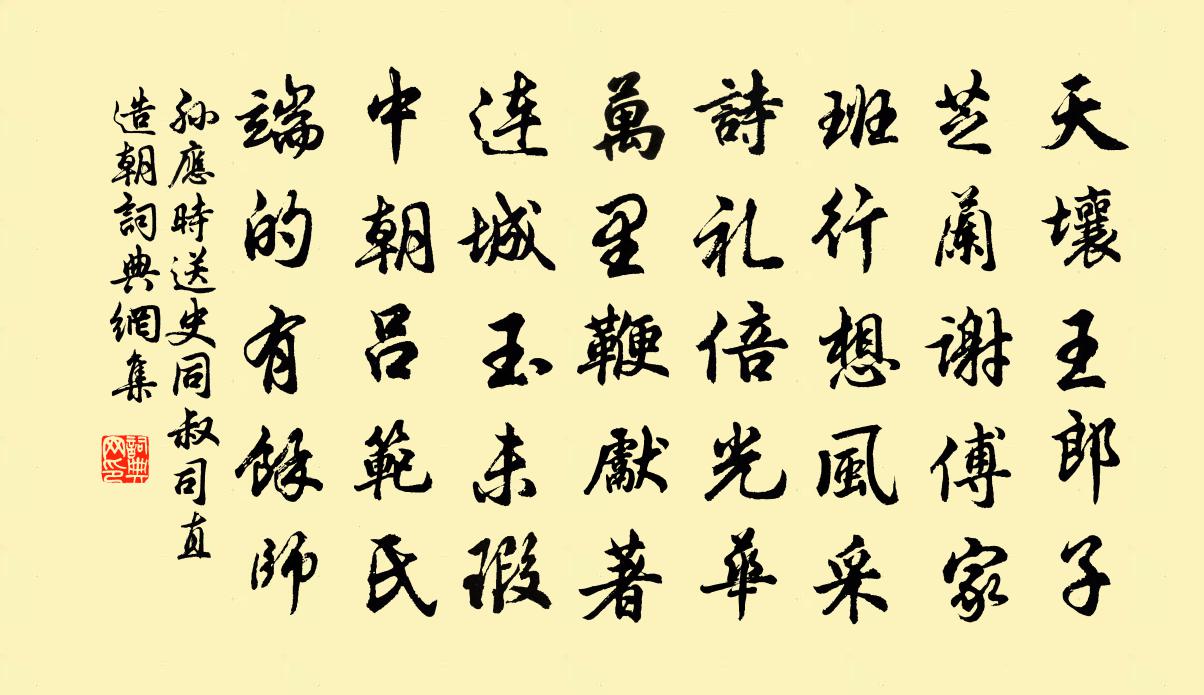 天壤王郎子
芝蘭謝傅家
班行想風采
詩礼倍光華
萬里鞭獻著
連城玉未瑕
中朝呂範氏
端的有餘師
孫應時送史同叔司直
造朝詞典網集
詞典网印